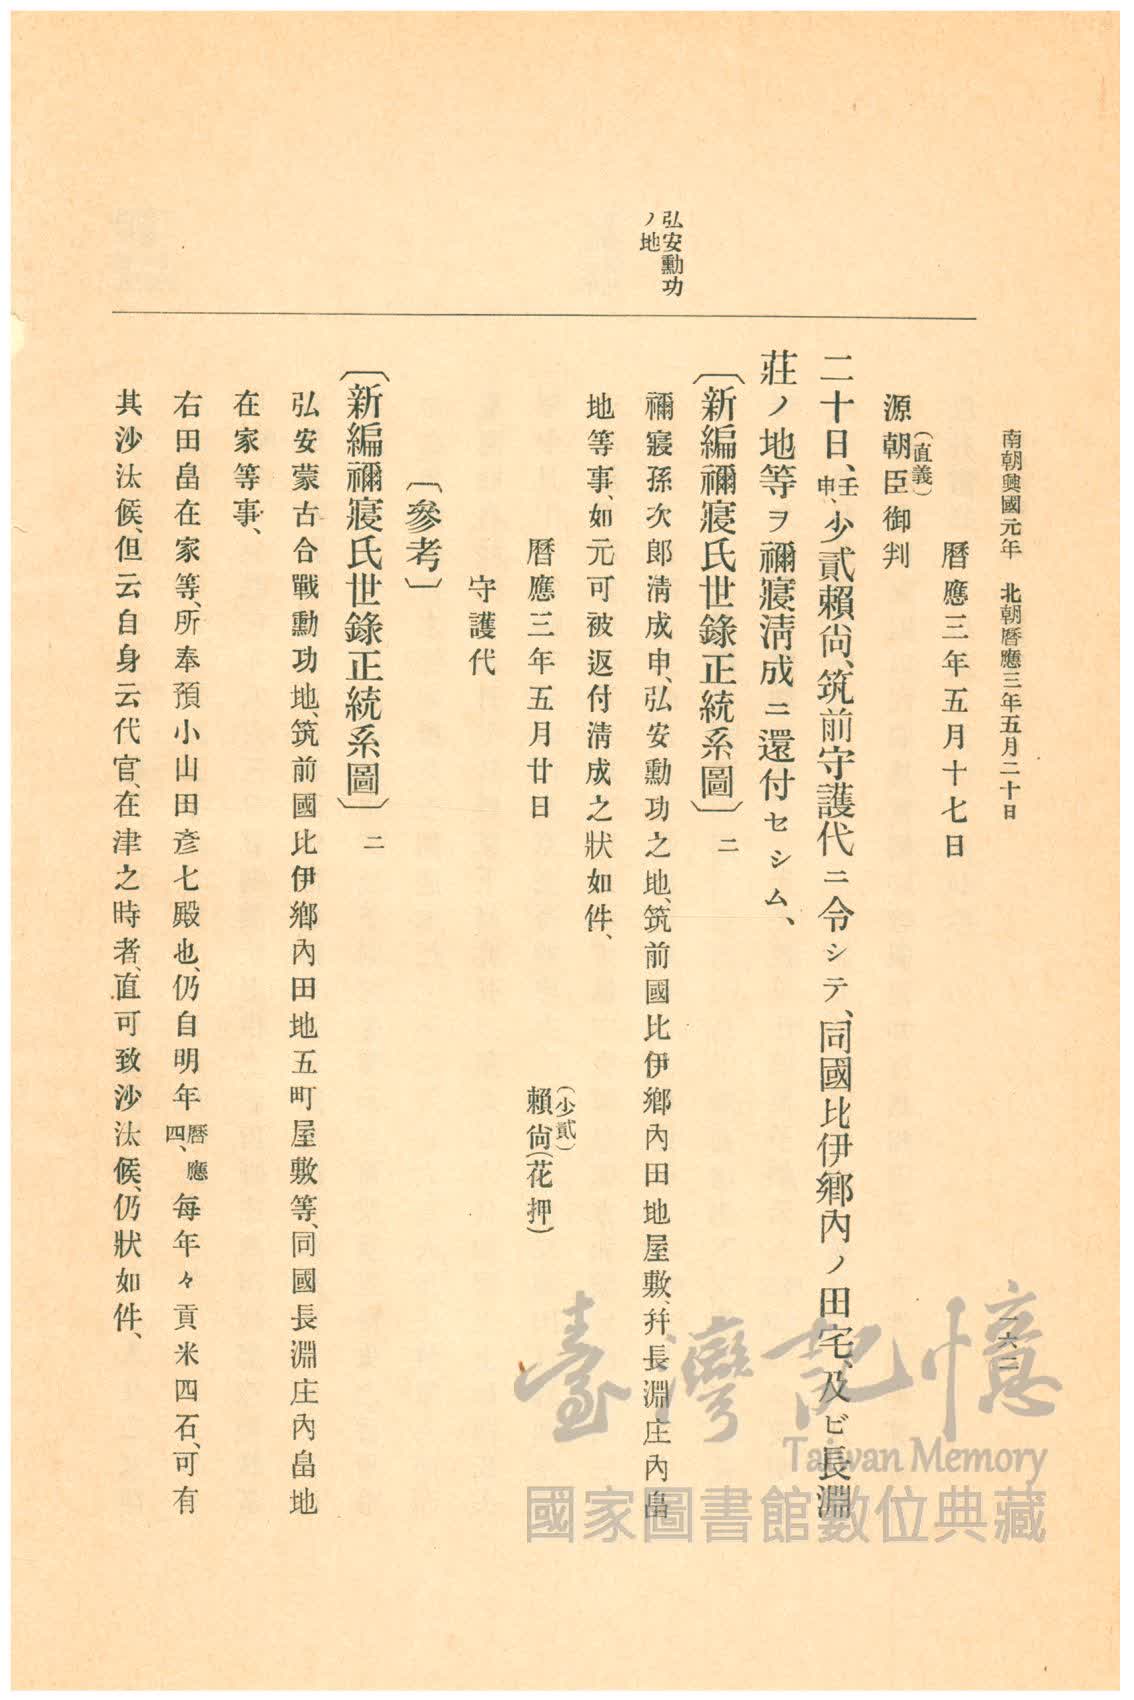 南朝興國元年　北朝曆應三年五月二十日
一六二
曆應三年五月十七日
源朝臣(直義)御判
二十日、壬申、少貳賴尙、筑前守護代ニ令シテ、同國比伊鄕內ノ田宅、及ビ長淵
莊ノ地等ヲ禰寢淸成ニ還付セシム、
〔新編禰寢氏世錄正統系圖〕二
弘安勳功
ノ地
禰寢孫次郎淸成申、弘安勳功之地、筑前國比伊鄕內田地屋敷、幷長淵庄內畠
地等事、如元可被返付淸成之狀如件、
曆應三年五月廿日　賴尙(少貳)(花押)
守護代
〔參考〕
〔新編禰寢氏世錄正統系圖〕二
弘安蒙古合戰勳功地、筑前國比伊鄕內田地五町屋敷等、同國長淵庄內畠地
在家等事、
右田畠在家等、所奉預小山田彥七殿也、仍自明年曆應四、每年々貢米四石、可有
其沙汰候、但云自身云代官、在津之時者、直可致沙汰候、仍狀如件、
臺灣記憶
Taiwan Memory
國家圖書館數位典藏